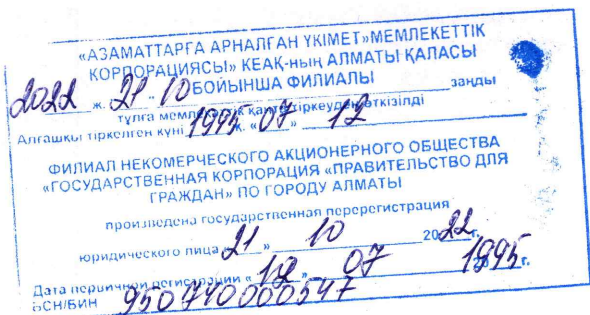 «АЗАМАТТАРҒА АРНАЛҒАН ҮКІМЕТ» МЕМЛЕКЕТТІК
КОРПОРАЦИЯСЫ» КЕАҚ-ның АЛМАТЫ ҚАЛАСЫ
БОЙЫНША ФИЛИАЛЫ
2022 ж. 21 10 заңды
тұлға мемлекеттік қайта тіркеуден өткізілді
Алғашқы тіркелген күні 1995 ж. «07» 12
ФИЛИАЛ НЕКОМЕРЧЕСКОГО АКЦИОНЕРНОГО ОБЩЕСТВА
«ГОСУДАРСТВЕННАЯ КОРПОРАЦИЯ «ПРАВИТЕЛЬСТВО ДЛЯ
ГРАЖДАН» ПО ГОРОДУ АЛМАТЫ
произведена государственная перерегистрация
юридического лица «21» 10 2022 г.
Дата первичной регистрации «12» 07 1995 г.
БСН/БИН 950740000547